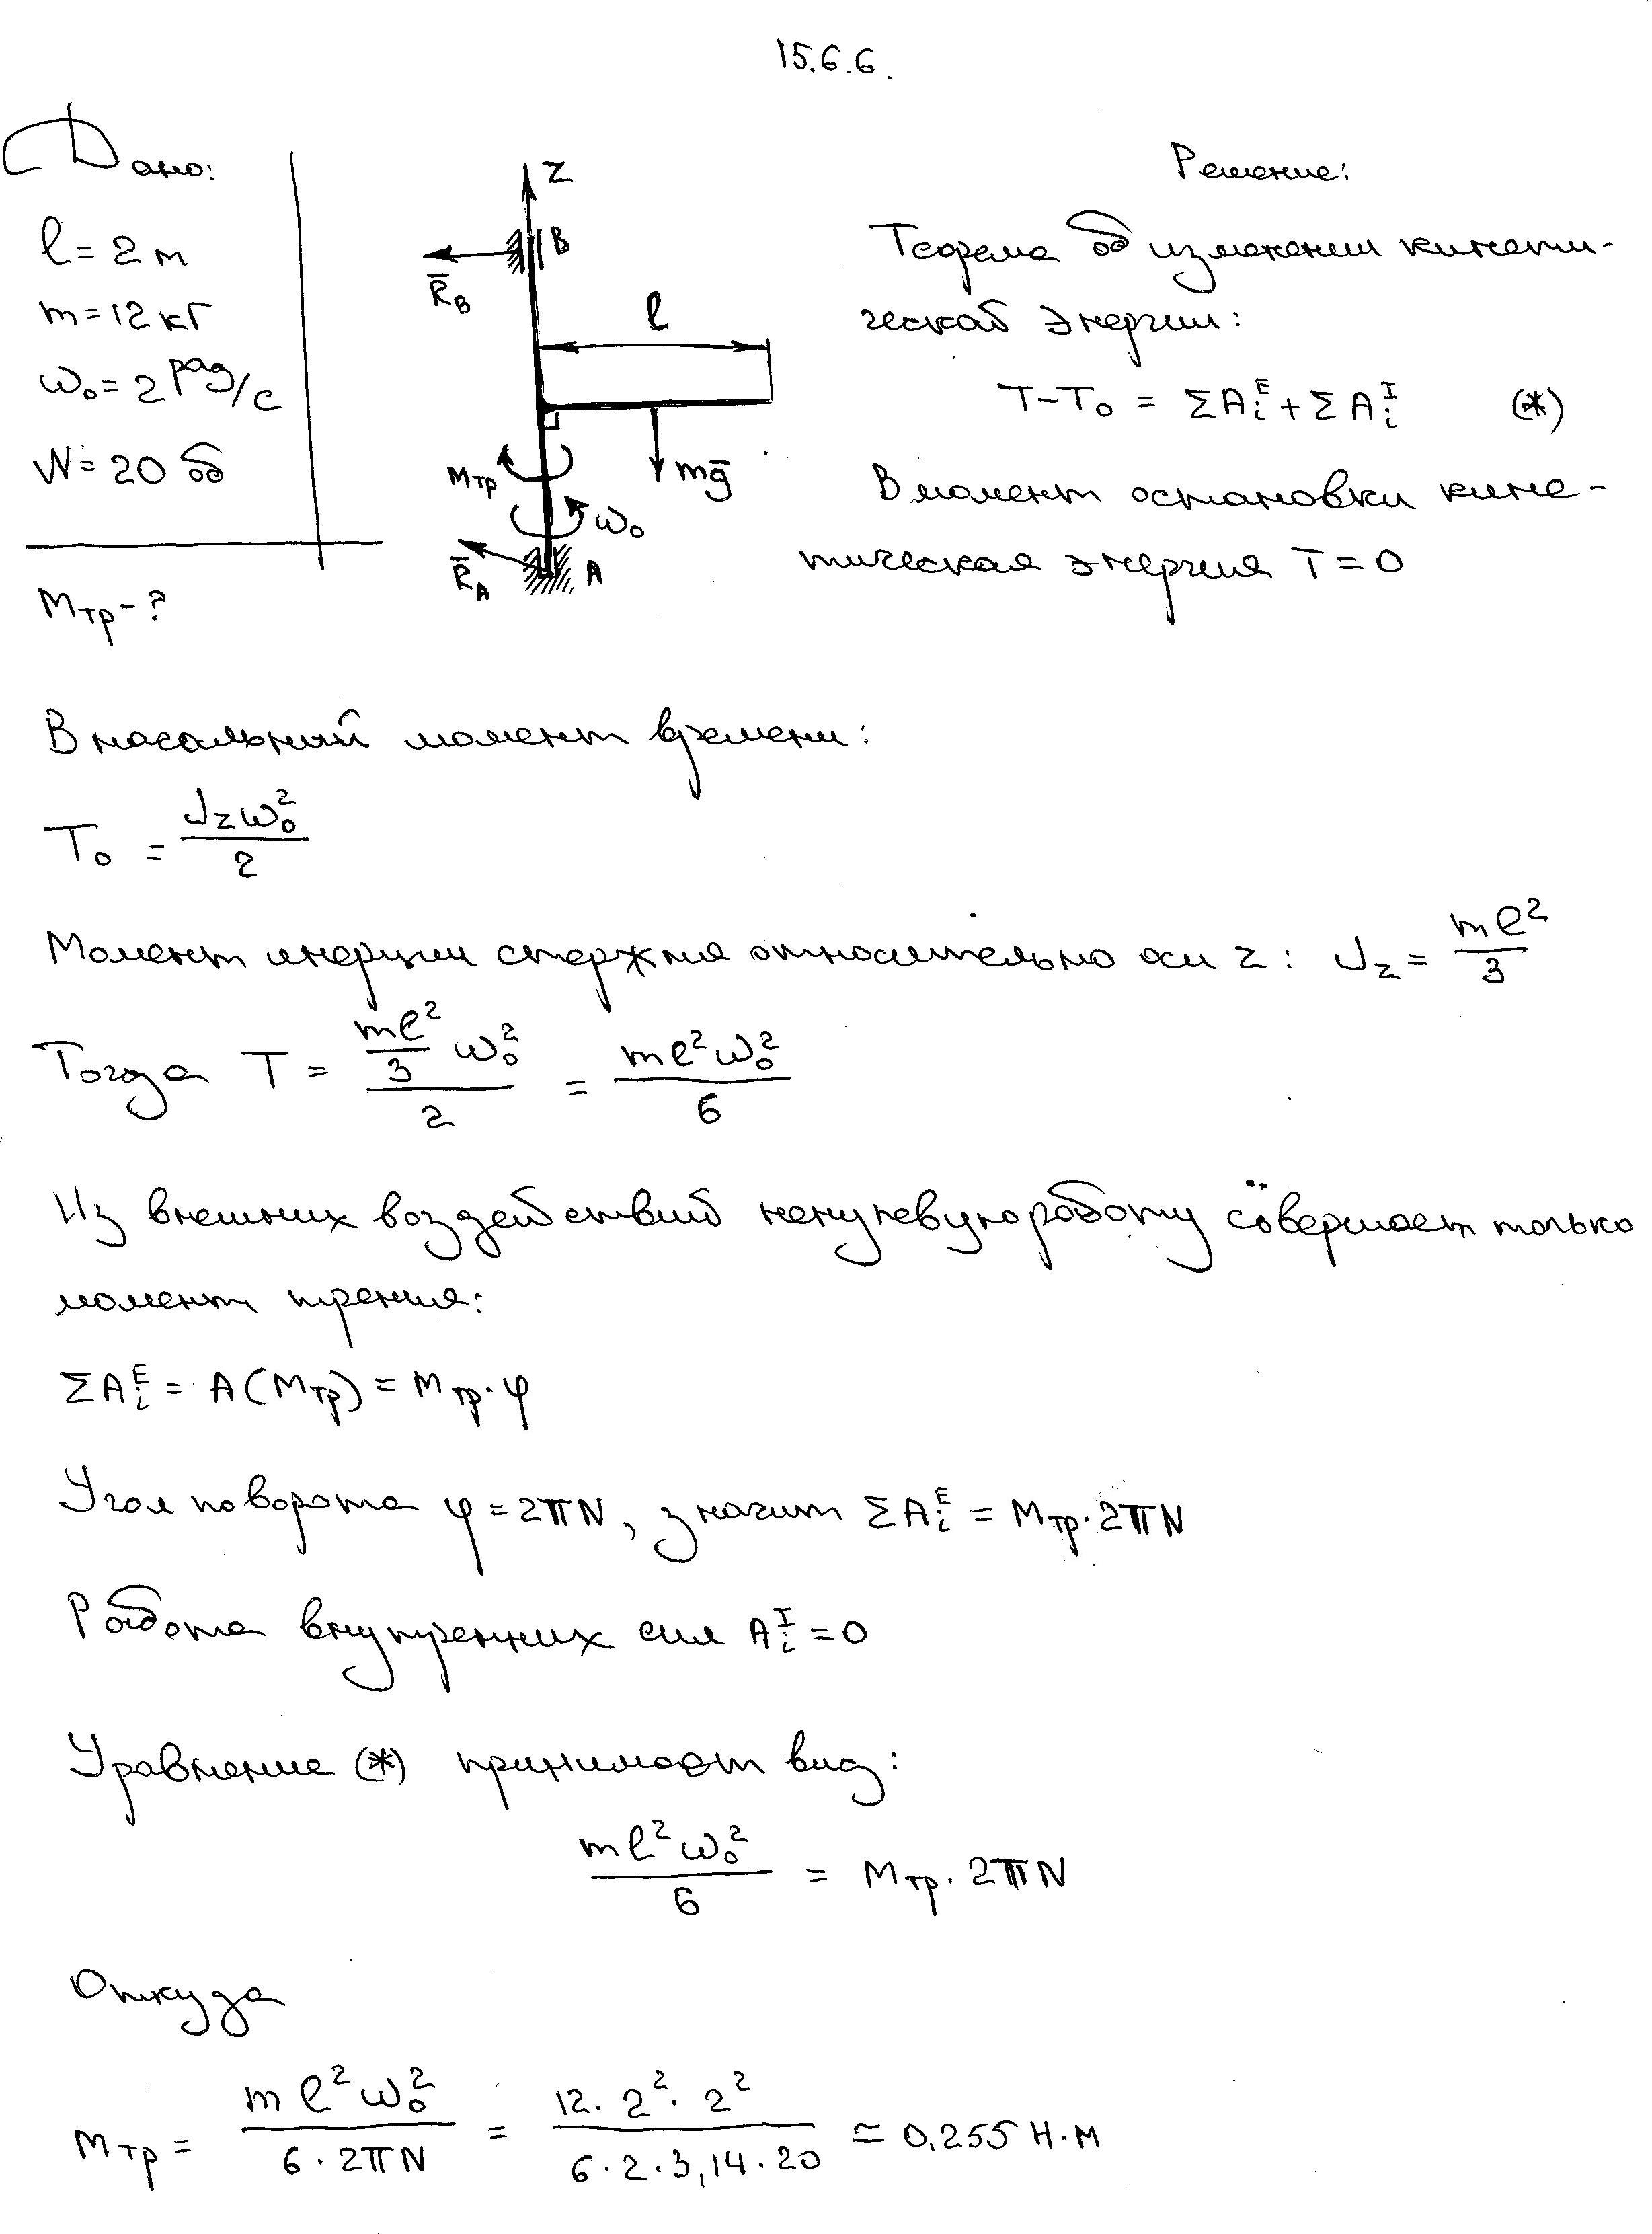 15.6.6.
Дано:
l = 2 м
m = 12 кг
ω₀ = 2 рад/с
N = 20 об
Mтр - ?
z
B
R̄B
l
Mтр
mḡ
ω₀
R̄A
A
Решение:
Теорема об изменении кинети-
ческой энергии:
T - T₀ = ΣAᵢᴱ + ΣAᵢᴵ (*)
В момент остановки кине-
тическая энергия T = 0
В начальный момент времени:
T₀ = Jzω₀²/2
Момент инерции стержня относительно оси z: Jz = ml²/3
Тогда T = (ml²/3 ω₀²)/2 = ml²ω₀²/6
Из внешних воздействий ненулевую работу совершает только
момент трения:
ΣAᵢᴱ = A(Mтр) = Mтр·φ
Угол поворота φ = 2πN, значит ΣAᵢᴱ = Mтр·2πN
Работа внутренних сил Aᵢᴵ = 0
Уравнение (*) принимает вид:
ml²ω₀²/6 = Mтр·2πN
Откуда
Mтр = ml²ω₀²/(6·2πN) = 12·2²·2²/(6·2·3,14·20) ≃ 0.255 Н·м